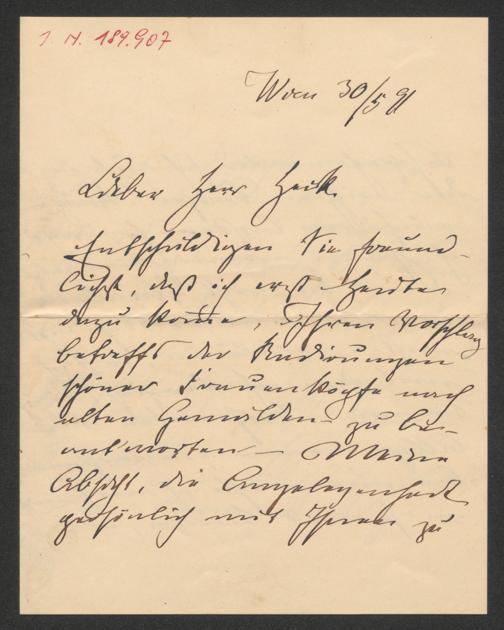 J. N. 189.907
Wien 30/5 91
Lieber Herr Heck
Entschuldigen Sie freund-
lichst, daß ich erst heute
dazu komme, Ihren Vorschlag
betreffs der Radirungen
schöner Frauenköpfe nach
alten Gemälden zu be-
antworten – Meine
Absicht, die Angelegenheit
persönlich mit Ihnen zu